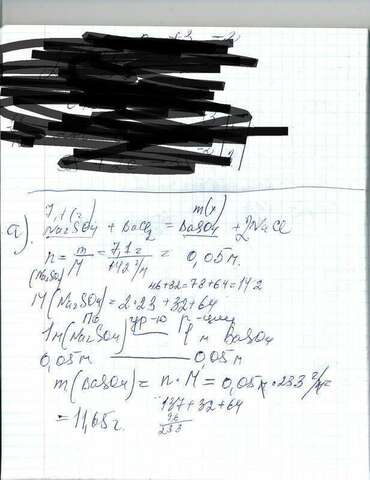 7,1 (г) m(x)
а). Na2SO4 + BaCl2 = BaSO4 + 2NaCl
n = m/M = 7,1 г/142 г/м = 0,05 м.
(Na2SO4)
46+32=78+64=142
M(Na2SO4) = 2·23+32+64
По ур-ю р-ции
1м(Na2SO4) 1 м BaSO4
0,05м — 0,05м
m(BaSO4) = n·M = 0,05м·233 г/м=
137+32+64
= 11,65г. 96
233